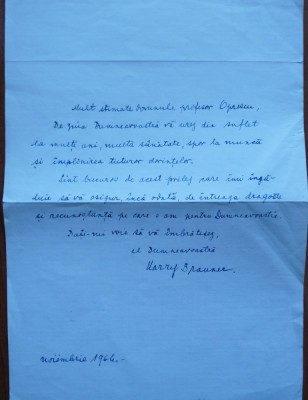 Mult stimate Domnule profesor Oprescu,
De ziua Dumneavoastră vă urez din suflet
la mulți ani, multă sănătate, spor la muncă
și împlinirea tuturor dorințelor.
Sînt bucuros de acest prilej care îmi îngă-
duie să vă asigur, încă odată, de întreaga dragoste
și recunoștință pe care o am pentru Dumneavoastră
Dați-mi voie să vă îmbrățișez,
al Dumneavoastră
Harry Brauner
noiembrie 1966.-